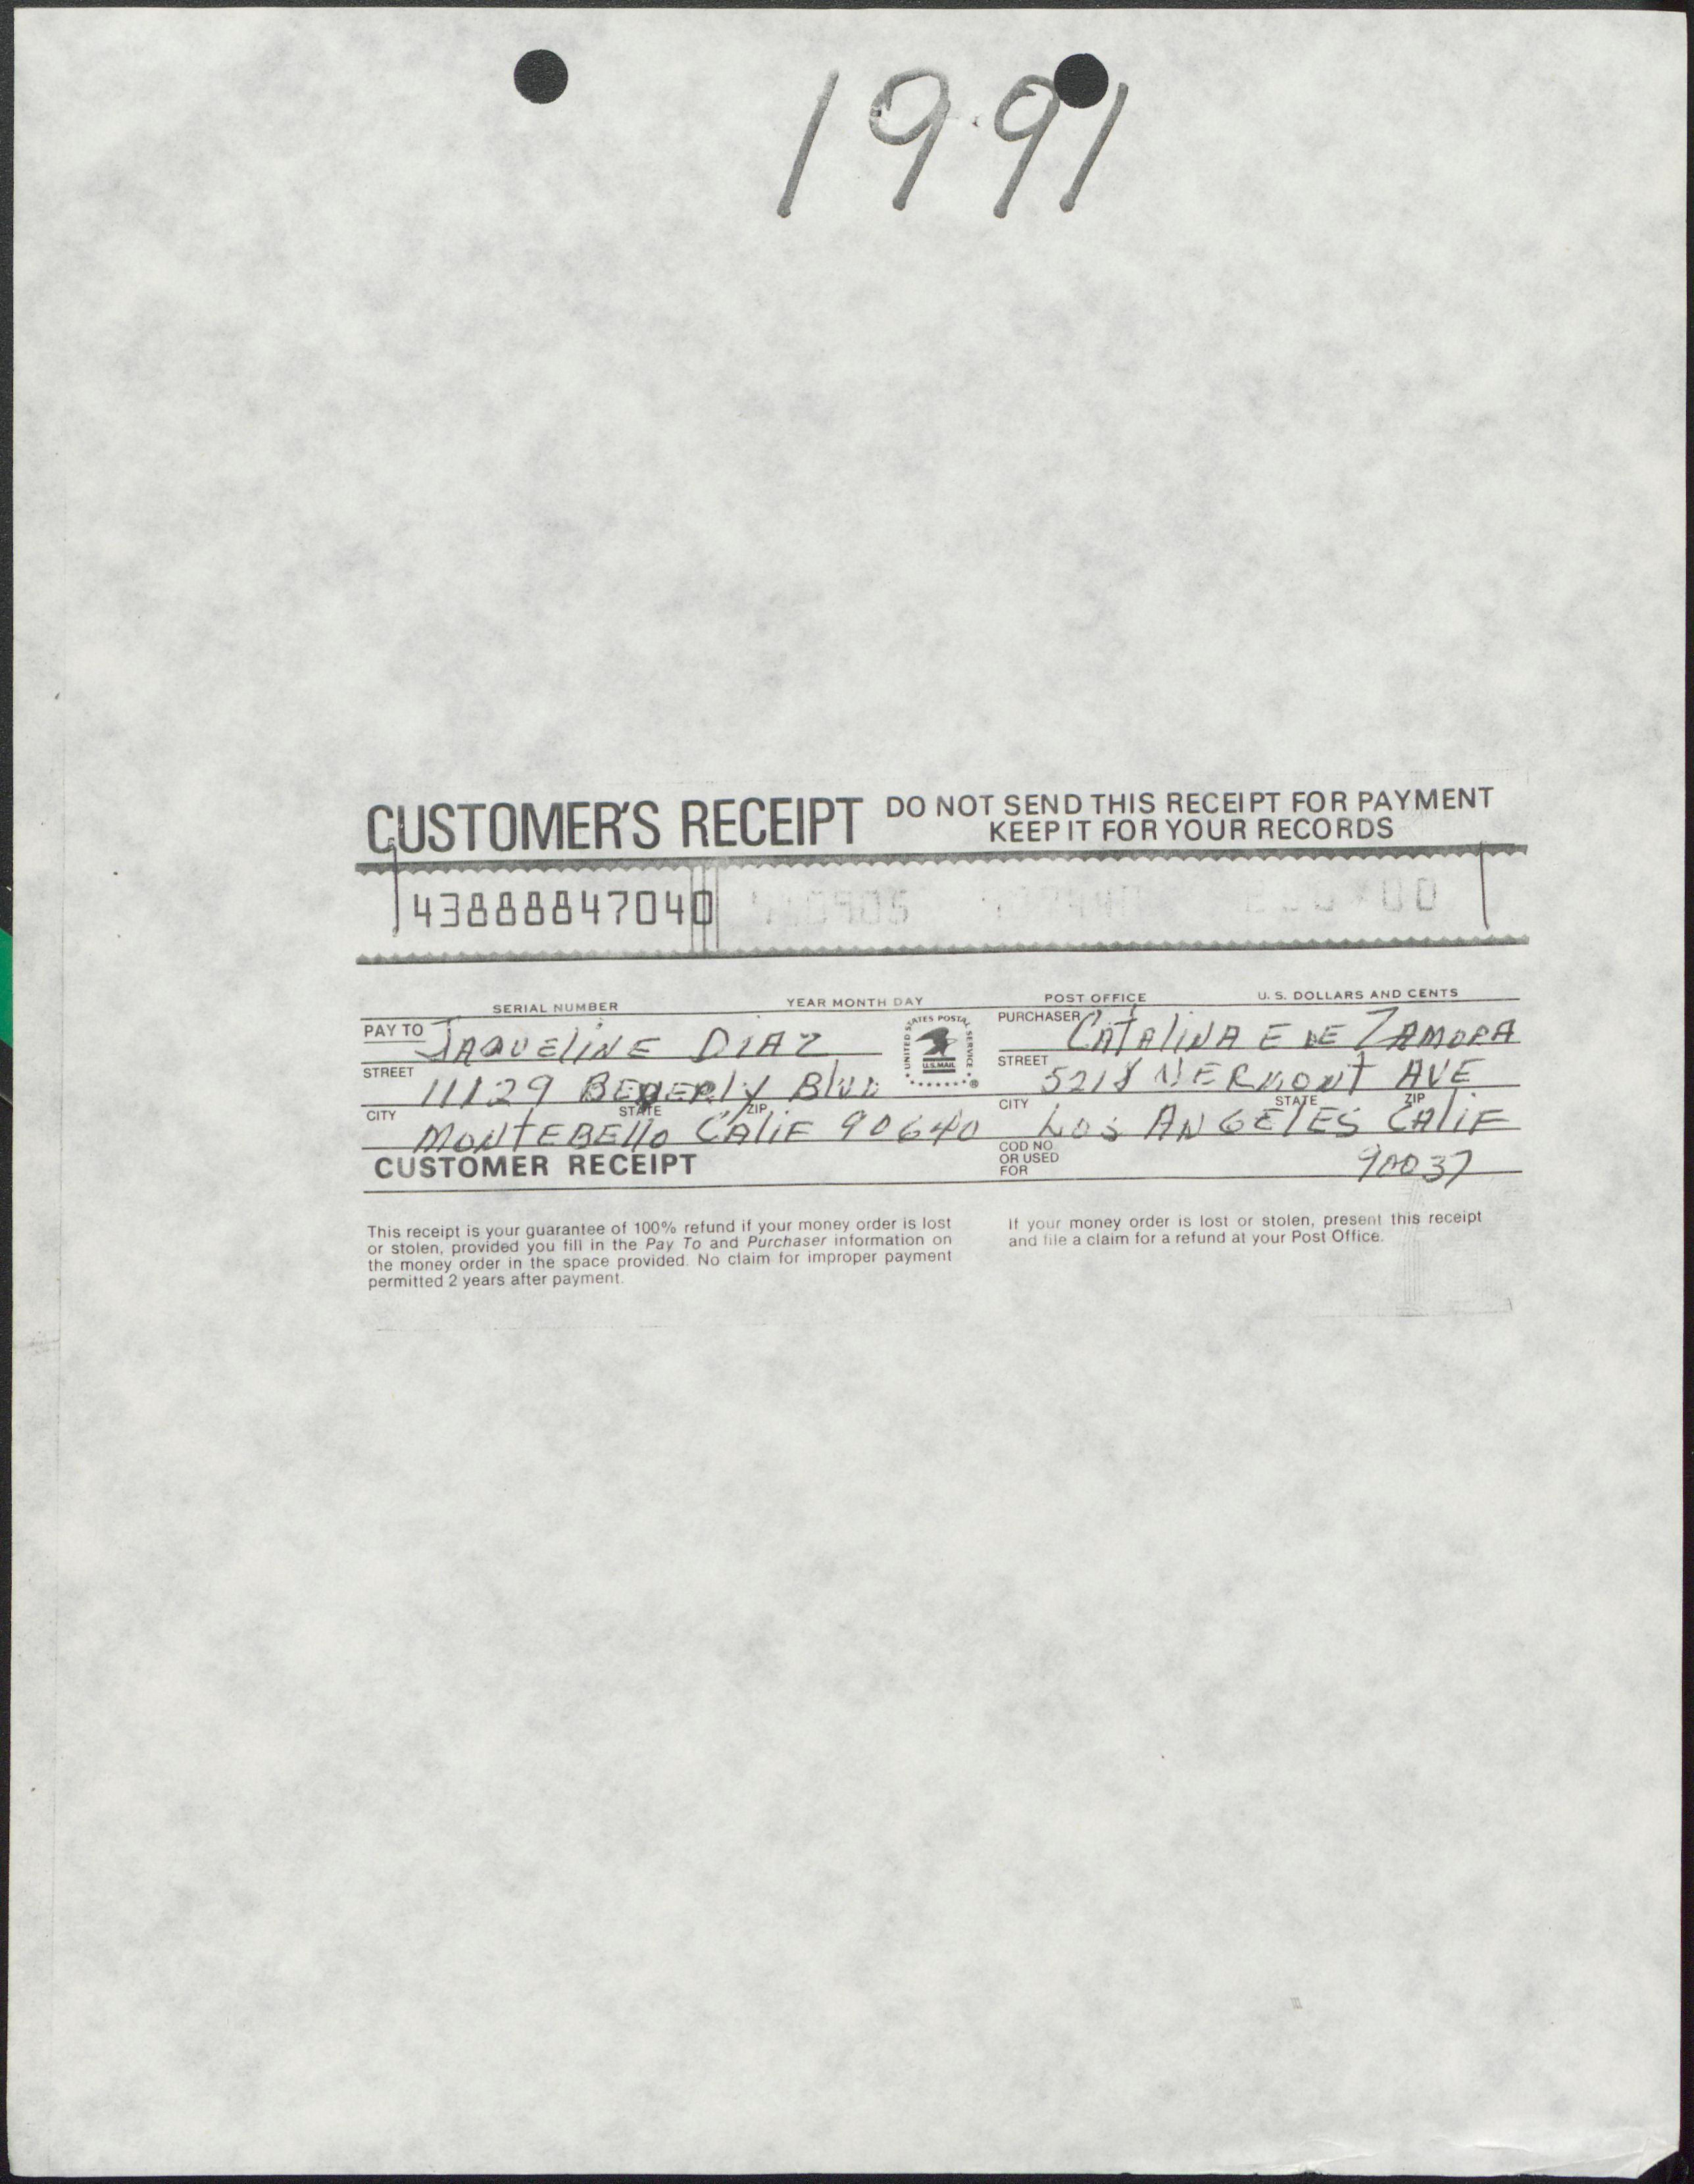 1991
CUSTOMER'S RECEIPT DO NOT SEND THIS RECEIPT FOR PAYMENT
KEEP IT FOR YOUR RECORDS
43888847040
SERIAL NUMBER YEAR MONTH DAY POST OFFICE U. S. DOLLARS AND CENTS
PAY TO JAQUELINE DIAZ
STREET 11129 BEVERLY BLVD
CITY STATE ZIP
MONTEBELLO CALIF 90640
CUSTOMER RECEIPT
UNITED STATES POSTAL SERVICE
U.S.MAIL
®
PURCHASER CATALINA E DE ZAMORA
STREET 5218 VERMONT AVE
CITY STATE ZIP
LOS ANGELES CALIF
COD NO
OR USED
FOR
90037
This receipt is your guarantee of 100% refund if your money order is lost
or stolen, provided you fill in the Pay To and Purchaser information on
the money order in the space provided. No claim for improper payment
permitted 2 years after payment.
If your money order is lost or stolen, present this receipt
and file a claim for a refund at your Post Office.